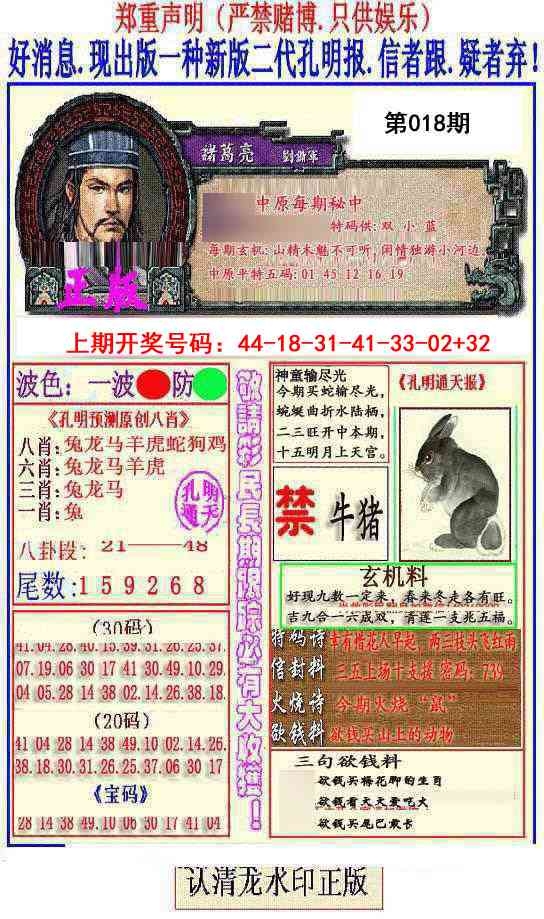 郑重声明（严禁赌博.只供娱乐）
好消息.现出版一种新版二代孔明报.信者跟.疑者弃！
第018期
諸葛亮 劉謝軍
中原每期秘中
特码供：双 小 蓝
每期玄机：山精木魅不可听，闲情独游小河边
中原平特五码：01 45 12 16 19
正版
上期开奖号码：44-18-31-41-33-02+32
波色：一波 防
《孔明预测原创八肖》
八肖：兔龙马羊虎蛇狗鸡
六肖：兔龙马羊虎
三肖：兔龙马
一肖：兔
孔明通天
八卦段：21——48
尾数：159268
（30码）
41.04.28.40.15.39.31.26.25.37
07.19.06.30 17 41 30.49.10.29.
04 05.28 14 38 02.14.26.38.18.
（20码）
41 04 28 14 38 49.10 02.14.26.
38.18.30.31.26.25.06 17 30 27
《宝码》
28 14 38 49.10 06 30 17 41 04
敬請彩民長期跟踪必有大收獲！
神童输尽光
今期买蛇输尽光，
蜿蜒曲折水陆栖，
二三旺开中本期，
十五明月上天宫。
《孔明通天报》
禁 牛猪
玄机料
好现九数一定来，春来冬走各有旺。
吉九合一六成双，青莲一支死五福。
特码诗 幸有惜花人早起，两三枝头飞红雨
信封料 三五上场十支援 密码：739
火烧诗 今期火烧“鼠”
欲钱料 欲钱买山上的动物
三句欲钱料
欲钱买梅花脚的生肖
欲钱看天天爱吃大
欲钱买尾巴最长
认清龙水印正版